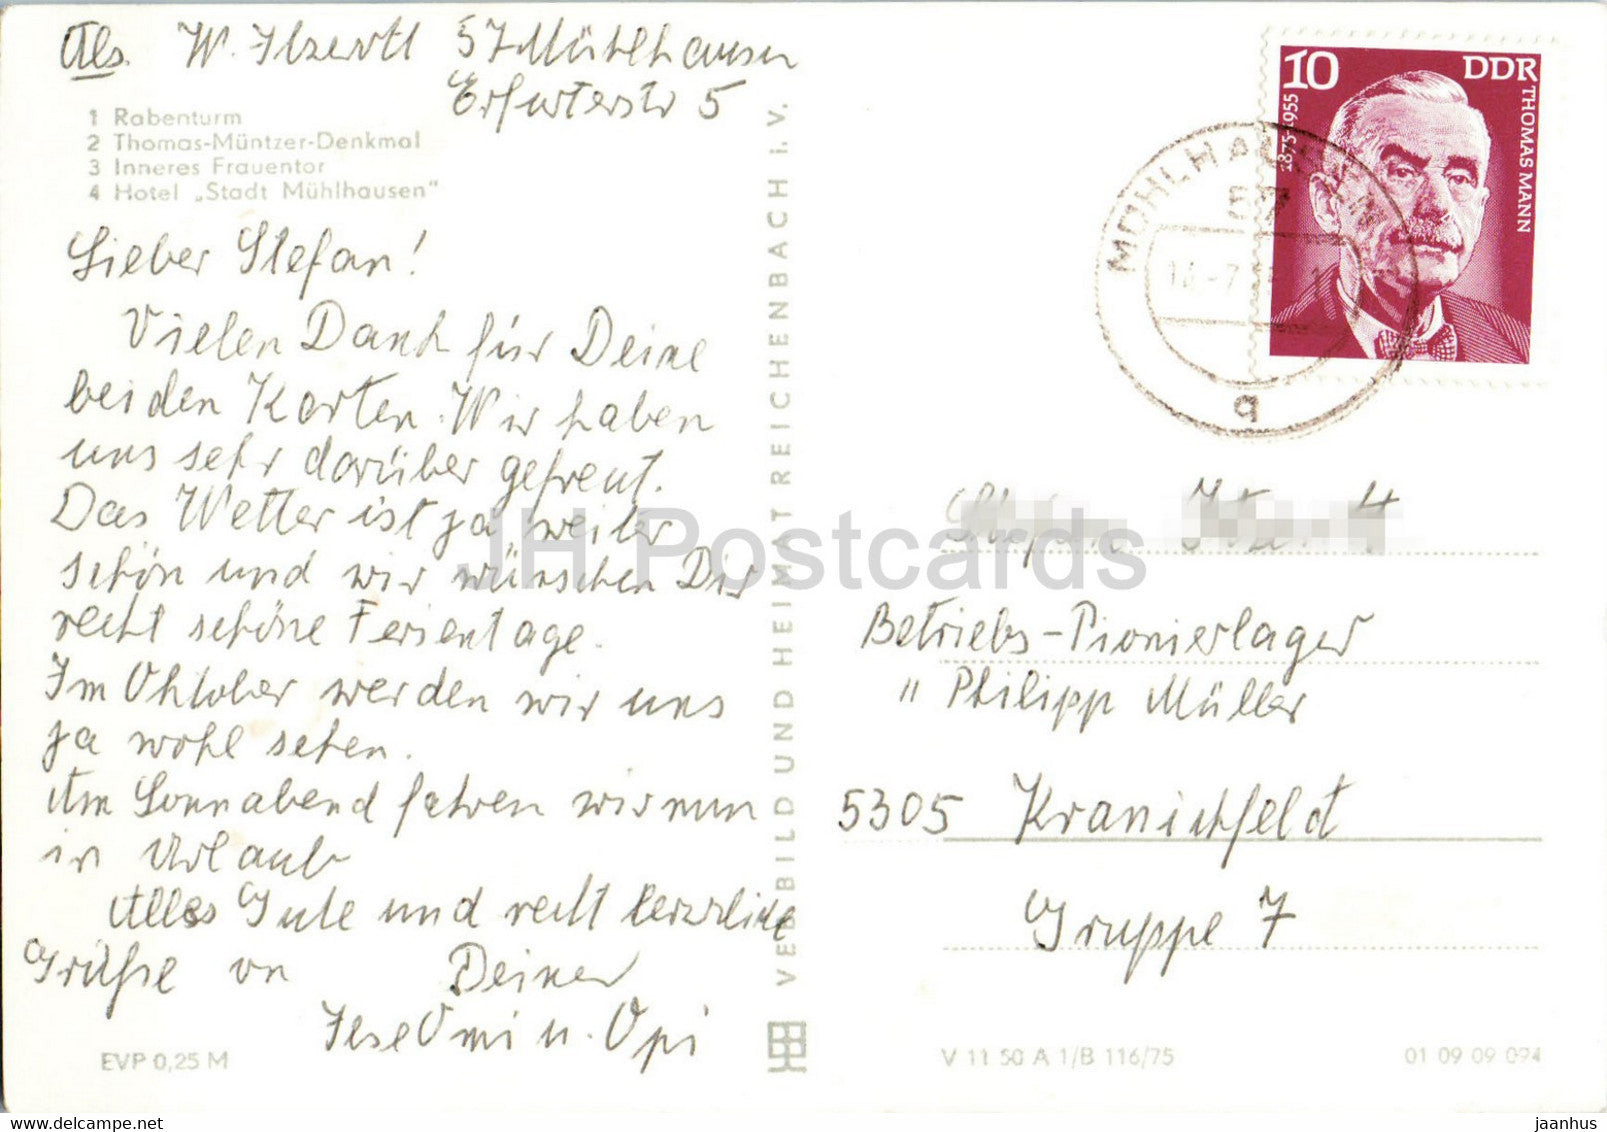 Abs. W. Ilzerott 57 Mühlhausen
Erfurterstr 5
1 Rabenturm
2 Thomas-Müntzer-Denkmal
3 Inneres Frauentor
4 Hotel „Stadt Mühlhausen"
Lieber Stefan!
Vielen Dank für Deine
beiden Karten. Wir haben
uns sehr darüber gefreut.
Das Wetter ist ja weiter
schön und wir wünschen Dir
recht schöne Ferientage.
Im Oktober werden wir uns
ja wohl sehen.
Am Sonnabend fahren wir nun
in Urlaub
Alles Gute und recht herzliche
Grüße von Deiner
Omi u. Opi
EVP 0,25 M
VEB BILD UND HEIMAT REICHENBACH i. V.
10 DDR
1875-1955
THOMAS MANN
MÜHLHAUSEN
57
q
Betriebs-Pionierlager
"Philipp Müller
5305 Kranichfeld
Gruppe 7
V 11 50 A 1/B 116/75
01 09 09 094
JH Postcards
jaanhus
www.delcampe.net